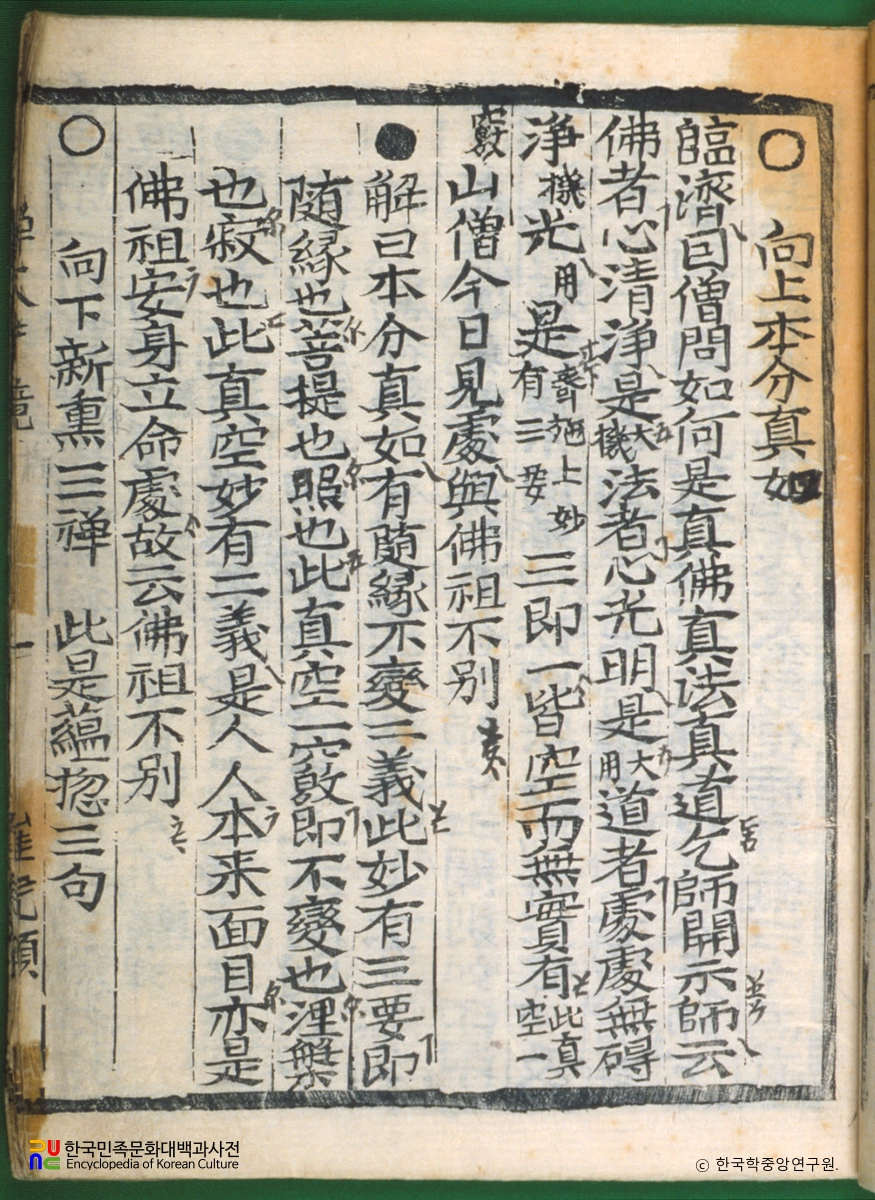 ○ 向上本分真如
臨濟因僧問如何是真佛真法真道乞師開示師云
佛者心清淨是大機法者心光明是大用道者處處無碍
淨機光用是齊施上妙有三要三即一皆空而無實有此真空一
竅山僧今日見處與佛祖不別
● 解曰本分真如有随緣不變二義此妙有三要即
随緣也菩提也照也此真空一竅即不變也涅槃
也寂也此真空妙有二義是人人本来面目亦是
佛祖安身立命處故云佛祖不別
○ 向下新熏三禅 此是蘊揔三句
한국민족문화대백과사전
Encyclopedia of Korean Culture
ⓒ 한국학중앙연구원.